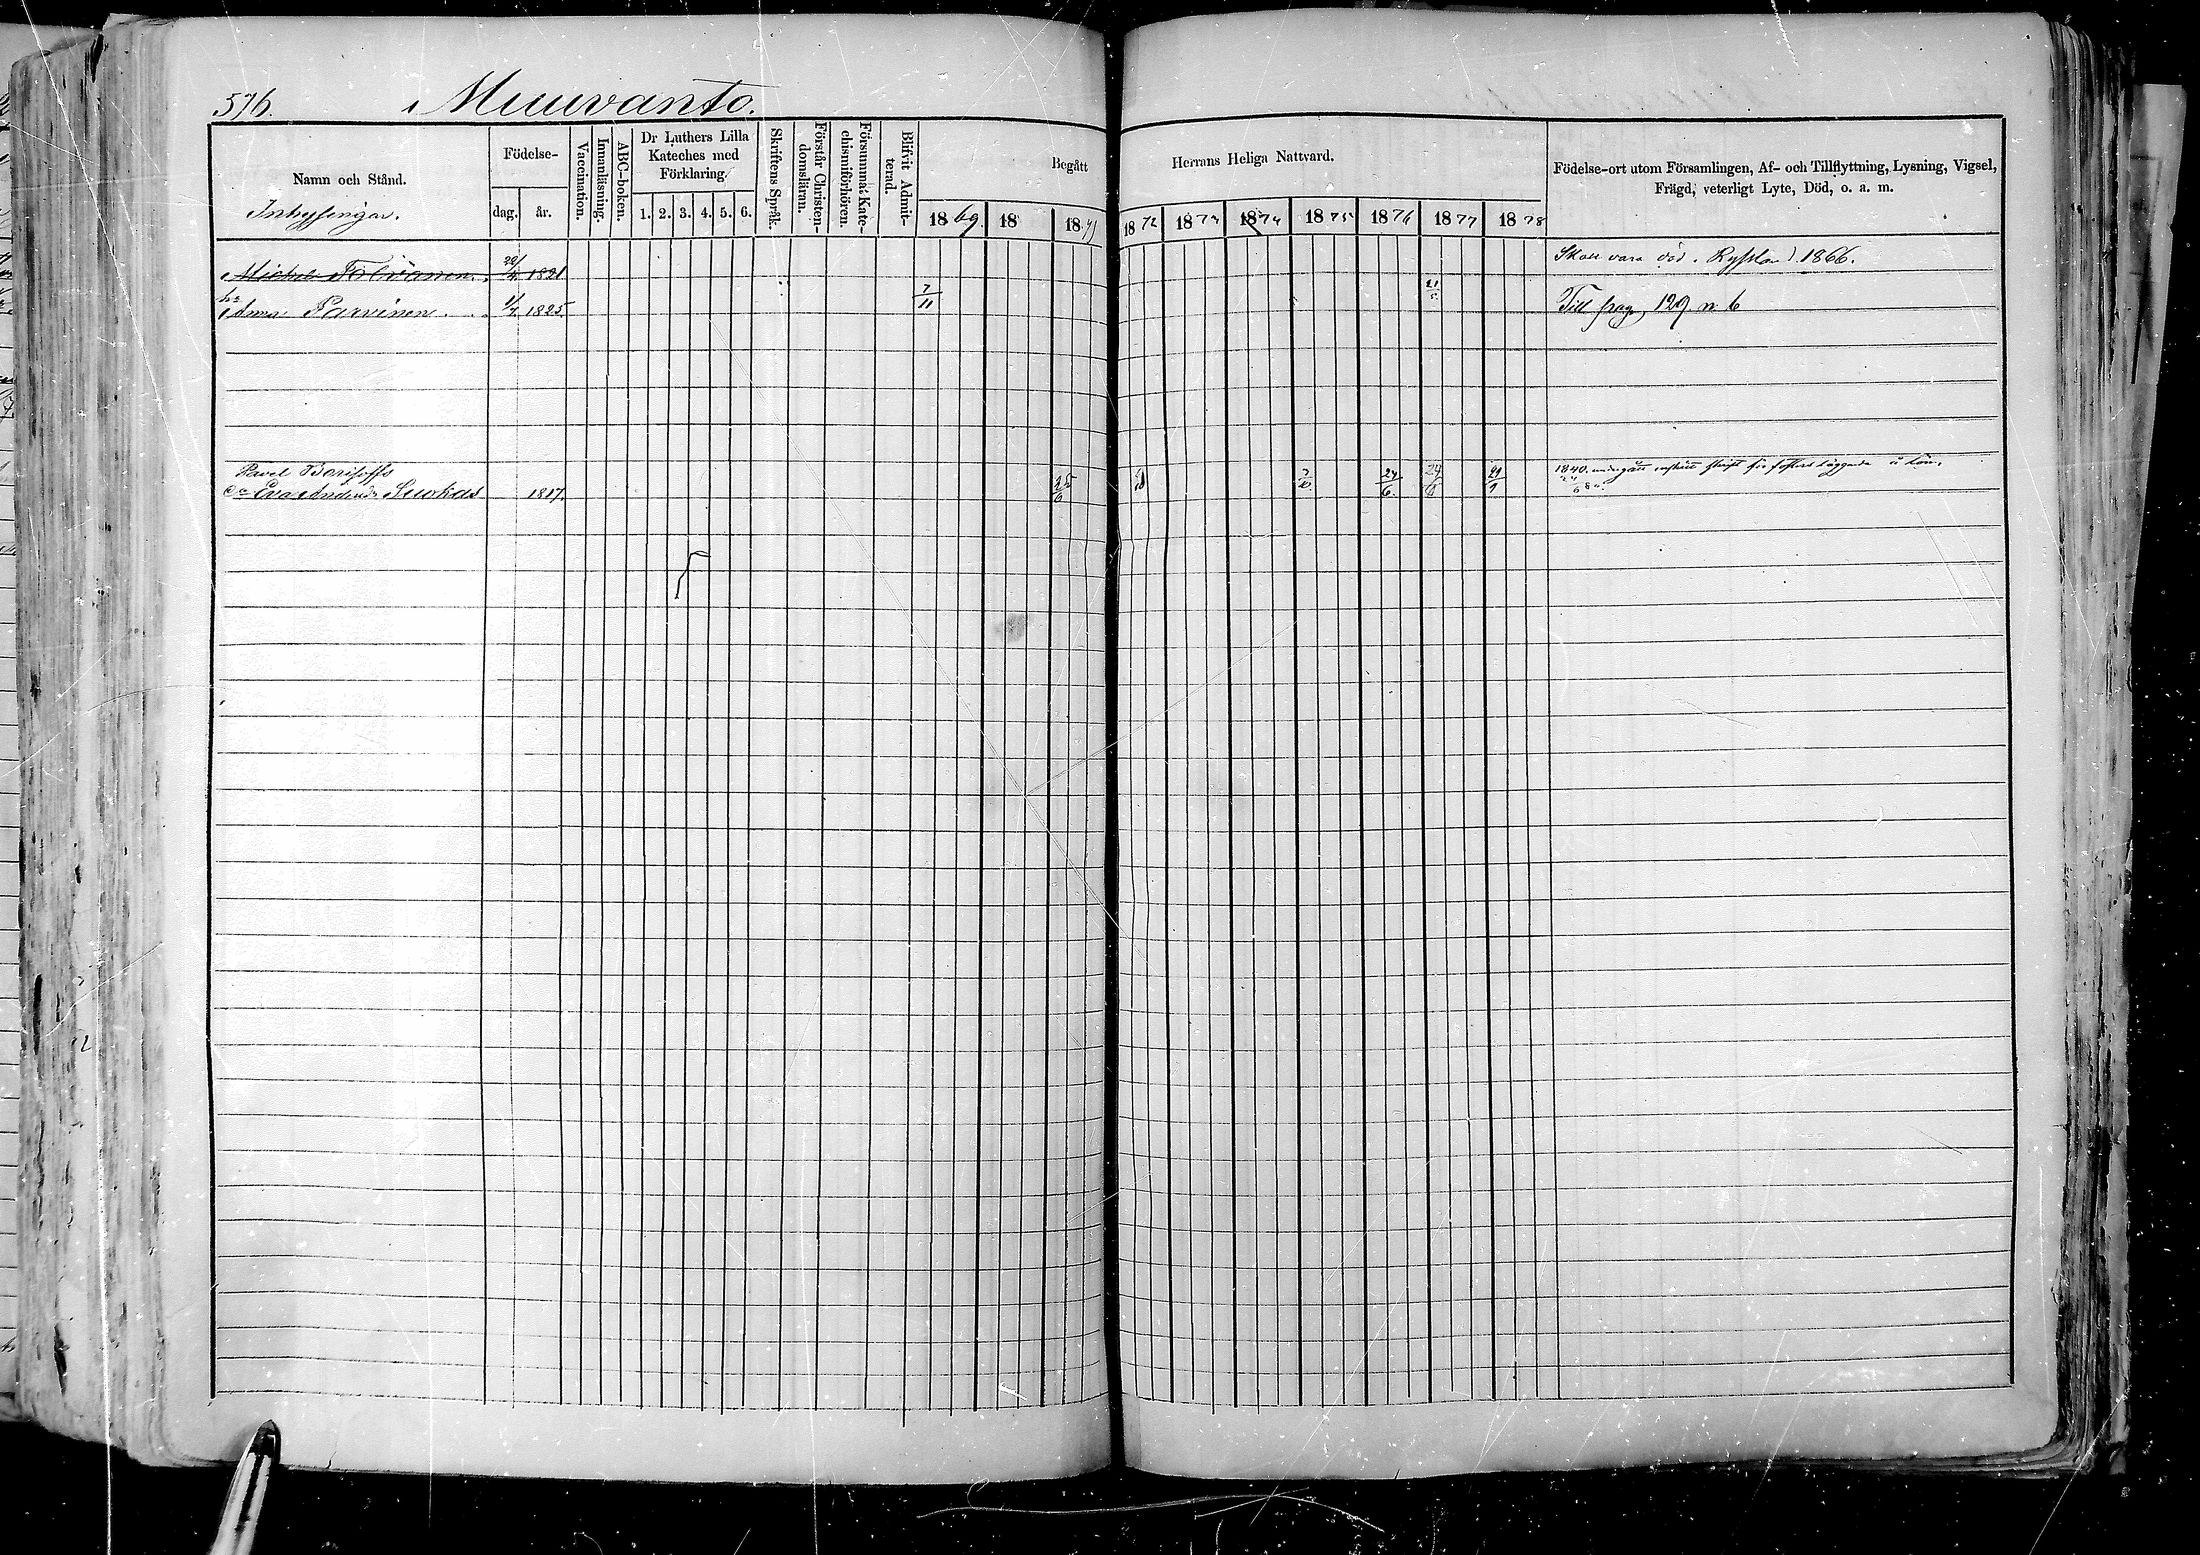 576. Muuvanto.
Namn och Stånd.
Inhysingar.
Födelse-
dag. år.
Vaccination.
Innanläsning.
ABC-boken.
Dr Luthers Lilla
Kateches med
Förklaring.
1. 2. 3. 4. 5. 6.
Skriftens Språk.
Förstår Christen-
domsläran.
Försummat Kate-
chismiförhören.
Blifvit Admit-
terad.
Begått Herrans Heliga Nattvard.
1869. 18 1871 1872 1873 1874 1875 1876 1877 1878
Födelse-ort utom Församlingen, Af- och Tillflyttning, Lysning, Vigsel,
Frägd, veterligt Lyte, Död, o. a. m.
Michel Tolvanen 1821 Skall vara död i Ryssland 1866.
hu Anna Parvinen 1825. 7/11 21/5 Till pag. 129 n 6
Pavel Borisoffs
Eva Andersdr Suokas 1817. 25/6 24/6. 1840.